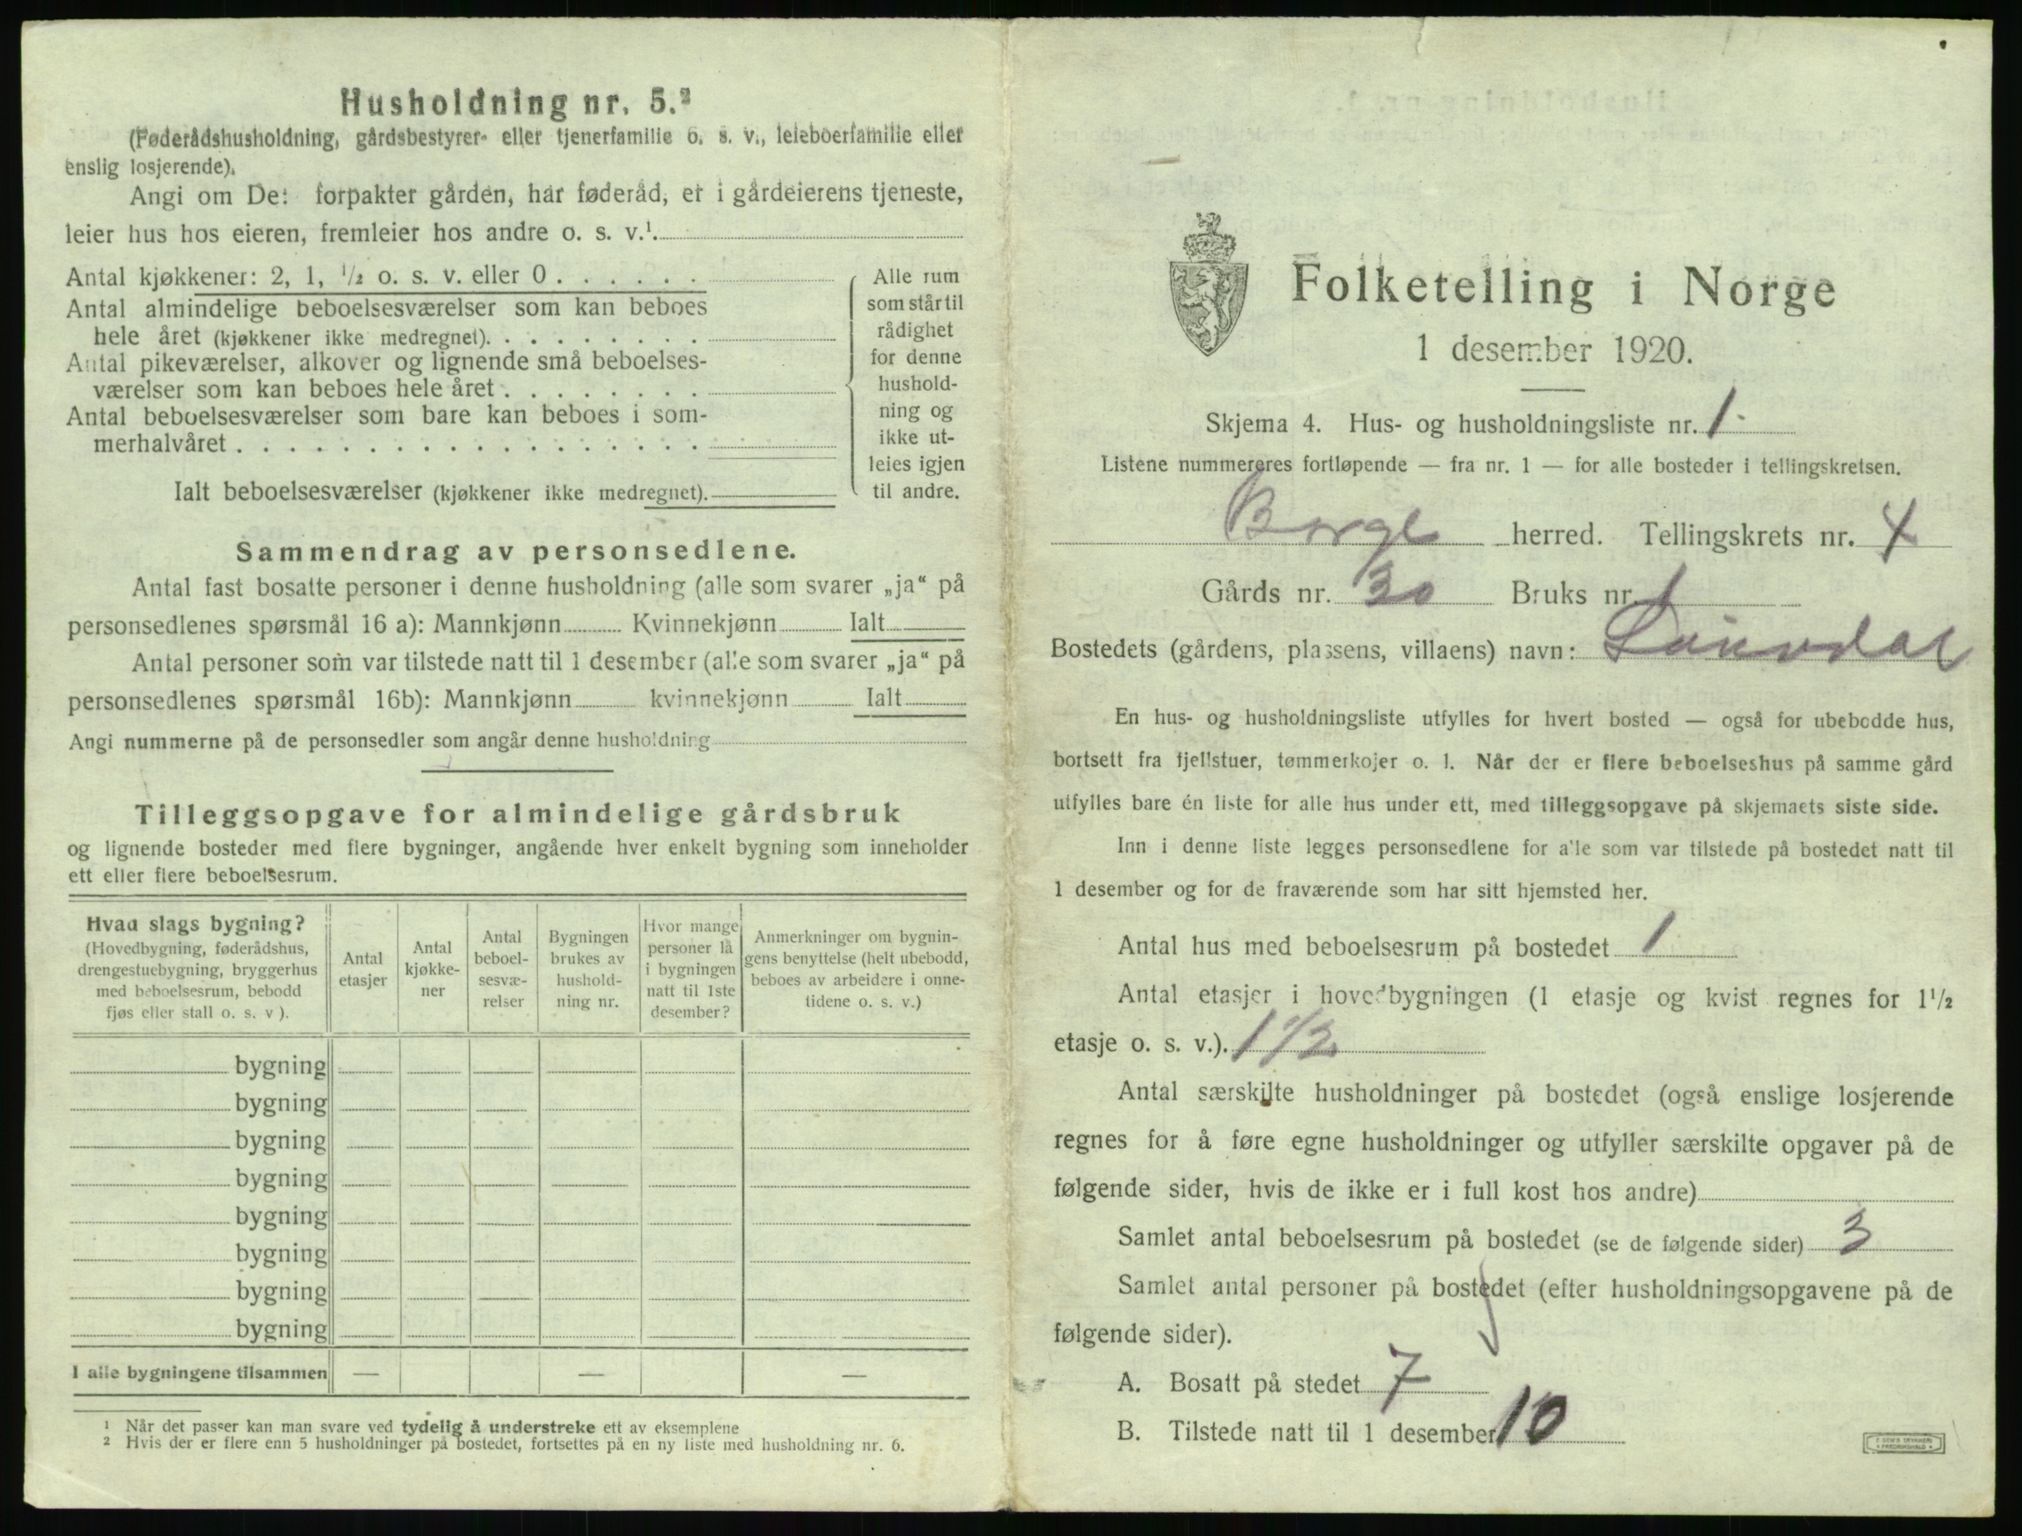 Husholdning nr. 5.²
(Føderådshusholdning, gårdsbestyrer- eller tjenerfamilie o. s. v., leieboerfamilie eller
enslig losjerende).
Angi om De: forpakter gården, har føderåd, er i gårdeierens tjeneste,
leier hus hos eieren, fremleier hos andre o. s. v.¹.
Antal kjøkkener: 2, 1, ½ o. s. v. eller 0 . . . . . .
Antal almindelige beboelsesværelser som kan beboes
hele året (kjøkkener ikke medregnet). . . . . . . . .
Antal pikeværelser, alkover og lignende små beboelses-
værelser som kan beboes hele året . . . . . . . .
Antal beboelsesværelser som bare kan beboes i som-
merhalvåret . . . . . . . . . . . . . . . . . .
Ialt beboelsesværelser (kjøkkener ikke medregnet).
Alle rum
som står til
rådighet
for denne
hushold-
ning og
ikke ut-
leies igjen
til andre.
Sammendrag av personsedlene.
Antal fast bosatte personer i denne husholdning (alle som svarer „ja“ på
personsedlenes spørsmål 16 a): Mannkjønn Kvinnekjønn Ialt
Antal personer som var tilstede natt til 1 desember (alle som svarer „ja“ på
personsedlenes spørsmål 16b): Mannkjønn kvinnekjønn Ialt
Angi nummerne på de personsedler som angår denne husholdning
Tilleggsopgave for almindelige gårdsbruk
og lignende bosteder med flere bygninger, angående hver enkelt bygning som inneholder
ett eller flere beboelsesrum.
Hvad slags bygning?
(Hovedbygning, føderådshus,
drengestuebygning, bryggerhus
med beboelsesrum, bebodd
fjøs eller stall o. s. v ).
Antal
etasjer
Antal
kjøkke-
ner
Antal
beboel-
sesvæ-
relser
Bygningen
brukes av
hushold-
ning nr.
Hvor mange
personer lå
i bygningen
natt til 1ste
desember?
Anmerkninger om bygnin-
gens benyttelse (helt ubebodd,
beboes av arbeidere i onne-
tidene o. s. v.)
bygning
bygning
bygning
bygning
bygning
bygning
bygning
bygning
I alle bygningene tilsammen — — —
¹ Når det passer kan man svare ved tydelig å understreke ett av eksemplene
² Hvis der er flere enn 5 husholdninger på bostedet, fortsettes på en ny liste med husholdning nr. 6.
Folketelling i Norge
1 desember 1920.
Skjema 4. Hus- og husholdningsliste nr. 1.
Listene nummereres fortløpende — fra nr. 1 — for alle bosteder i tellingskretsen.
Borge herred. Tellingskrets nr. 4
Gårds nr. 30 Bruks nr. 1
Bostedets (gårdens, plassens, villaens) navn:
En hus- og husholdningsliste utfylles for hvert bosted — også for ubebodde hus,
bortsett fra fjellstuer, tømmerkojer o. l. Når der er flere beboelseshus på samme gård
utfylles bare én liste for alle hus under ett, med tilleggsopgave på skjemaets siste side.
Inn i denne liste legges personsedlene for alle som var tilstede på bostedet natt til
1 desember og for de fraværende som har sitt hjemsted her.
Antal hus med beboelsesrum på bostedet 1
Antal etasjer i hovedbygningen (1 etasje og kvist regnes for 1½
etasje o. s. v.). 1 1/2
Antal særskilte husholdninger på bostedet (også enslige losjerende
regnes for å føre egne husholdninger og utfyller særskilte opgaver på de
følgende sider, hvis de ikke er i full kost hos andre)
Samlet antal beboelsesrum på bostedet (se de følgende sider) 3
Samlet antal personer på bostedet (efter husholdningsopgavene på de
følgende sider).
A. Bosatt på stedet 7
B. Tilstede natt til 1 desember 10